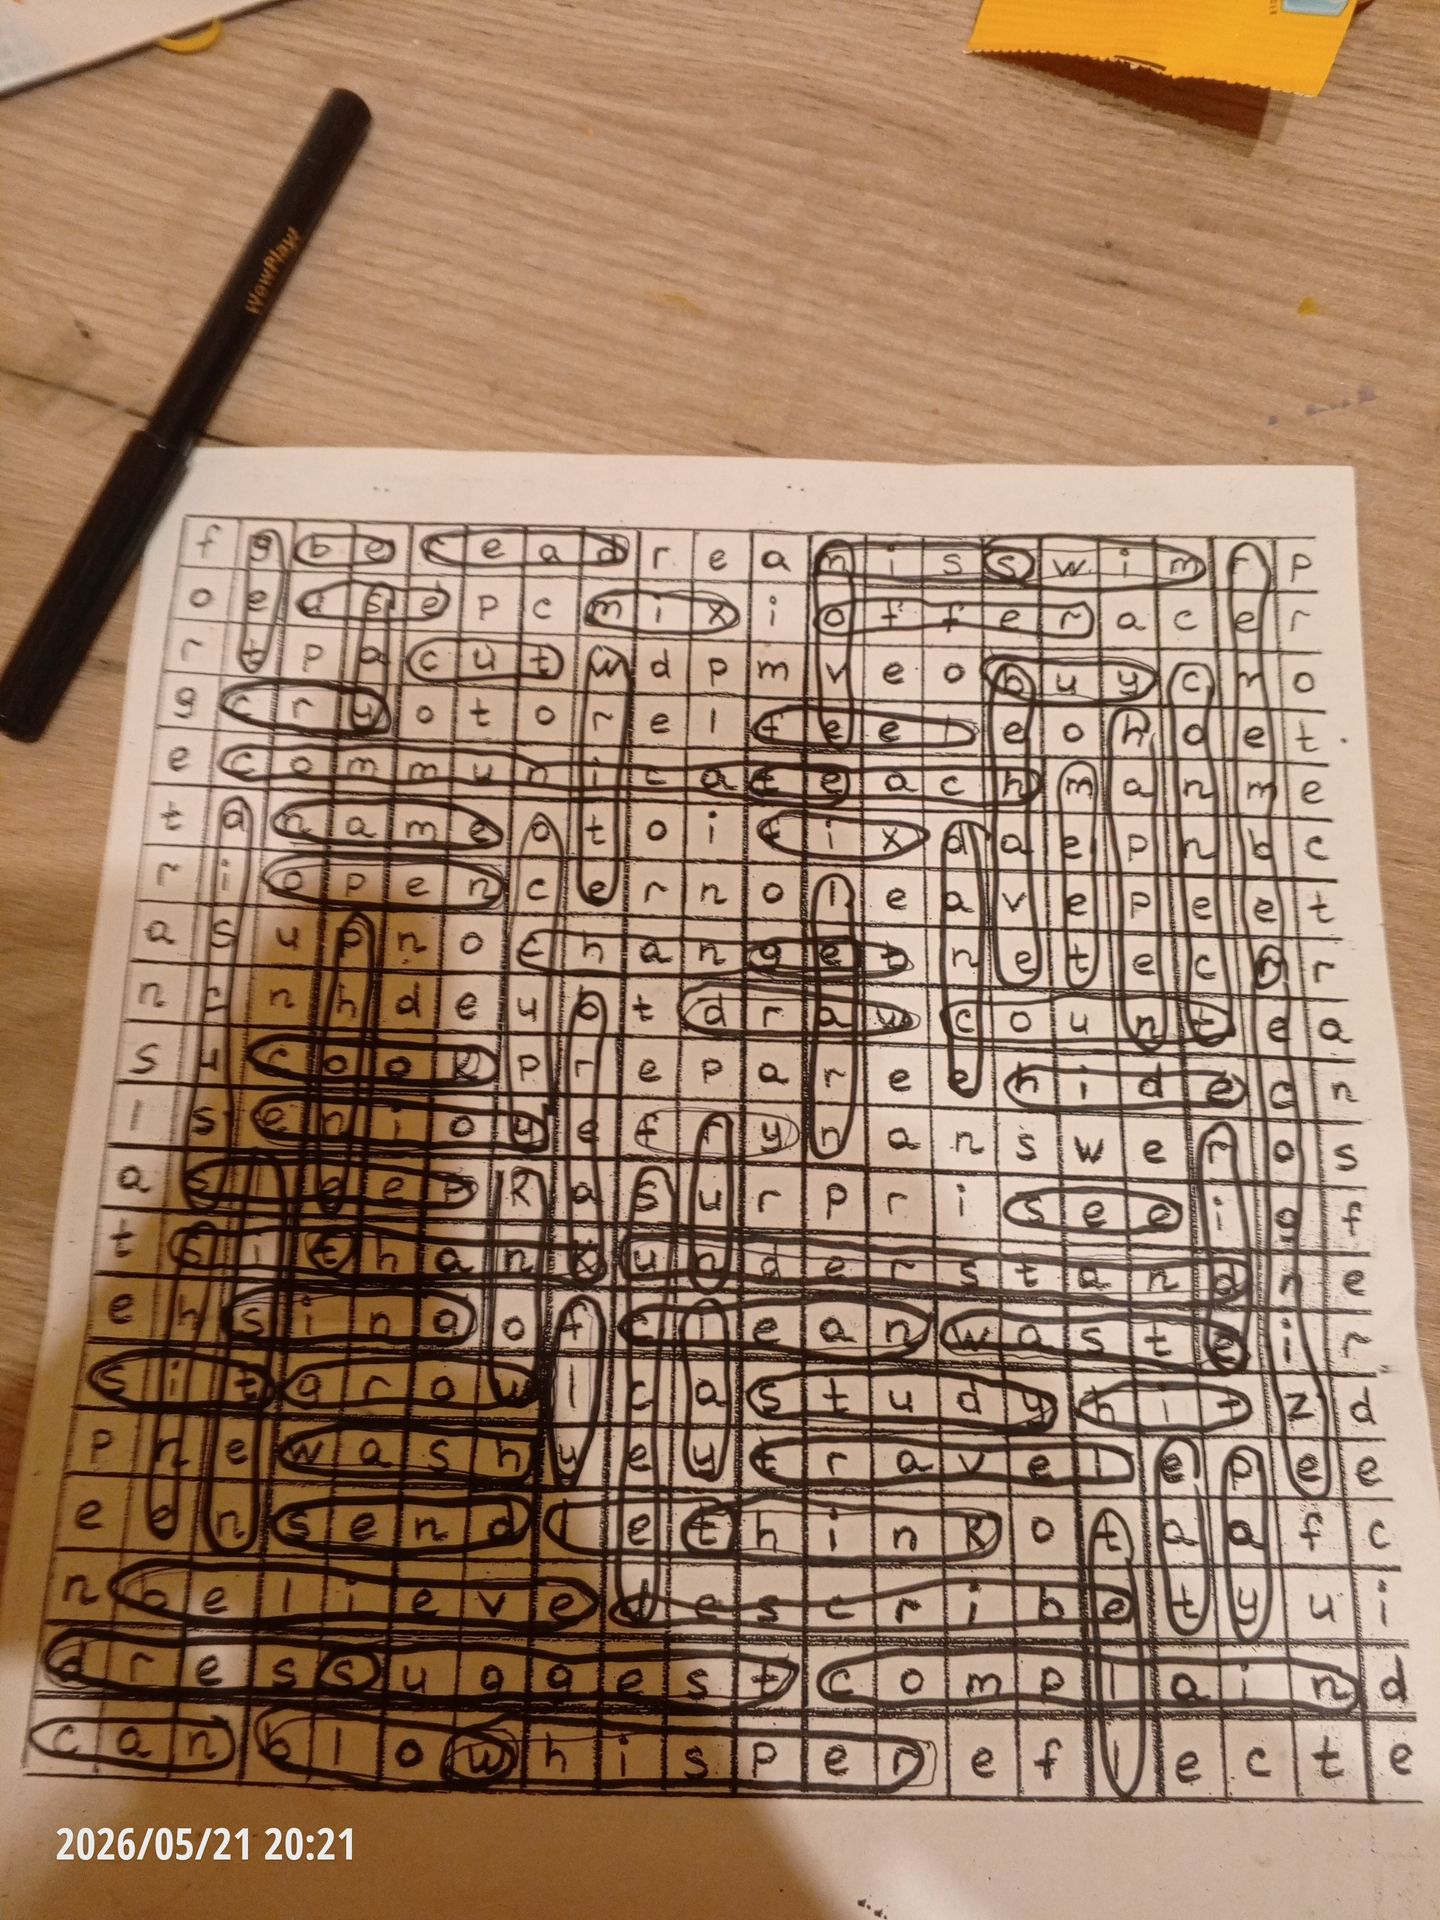 WowPlay
f g b e r e a d r e a m i s s w i m r p
o e u s e p c m i x i o f f e r a c e r
r t p a c u t w d p m v e o b u y c m o
g c r y o t o r e l f e e l e o h o e t
e c o m m u n i c a t e a c h m a n m e
t a n a m e o t o i f i x d a e p n b c
r i o p e n c e r n o l e a v e p e e t
a s u p n o c h a n g e t n e t e c r r
n c n h d e u b t d r a w c o u n t e a
s u c o o k p r e p a r e e h i d e c n
l s e n j o y e f r y n a n s w e r o s
a s l e e p k a s u r p r i s e e i g f
t s i t h a n k u n d e r s t a n d n e
e h s i n g o f c l e a n w a s t e i r
s i t g r o w l c a s t u d y h i t z d
p n e w a s h y e y t r a v e l e p e e
e e n s e n d l e t h i n k o t a a f c
n b e l i e v e d e s c r i b e t y u i
d r e s s u g g e s t c o m p l a i n d
c a n b l o w h i s p e r e f l e c t e
2026/05/21 20:21